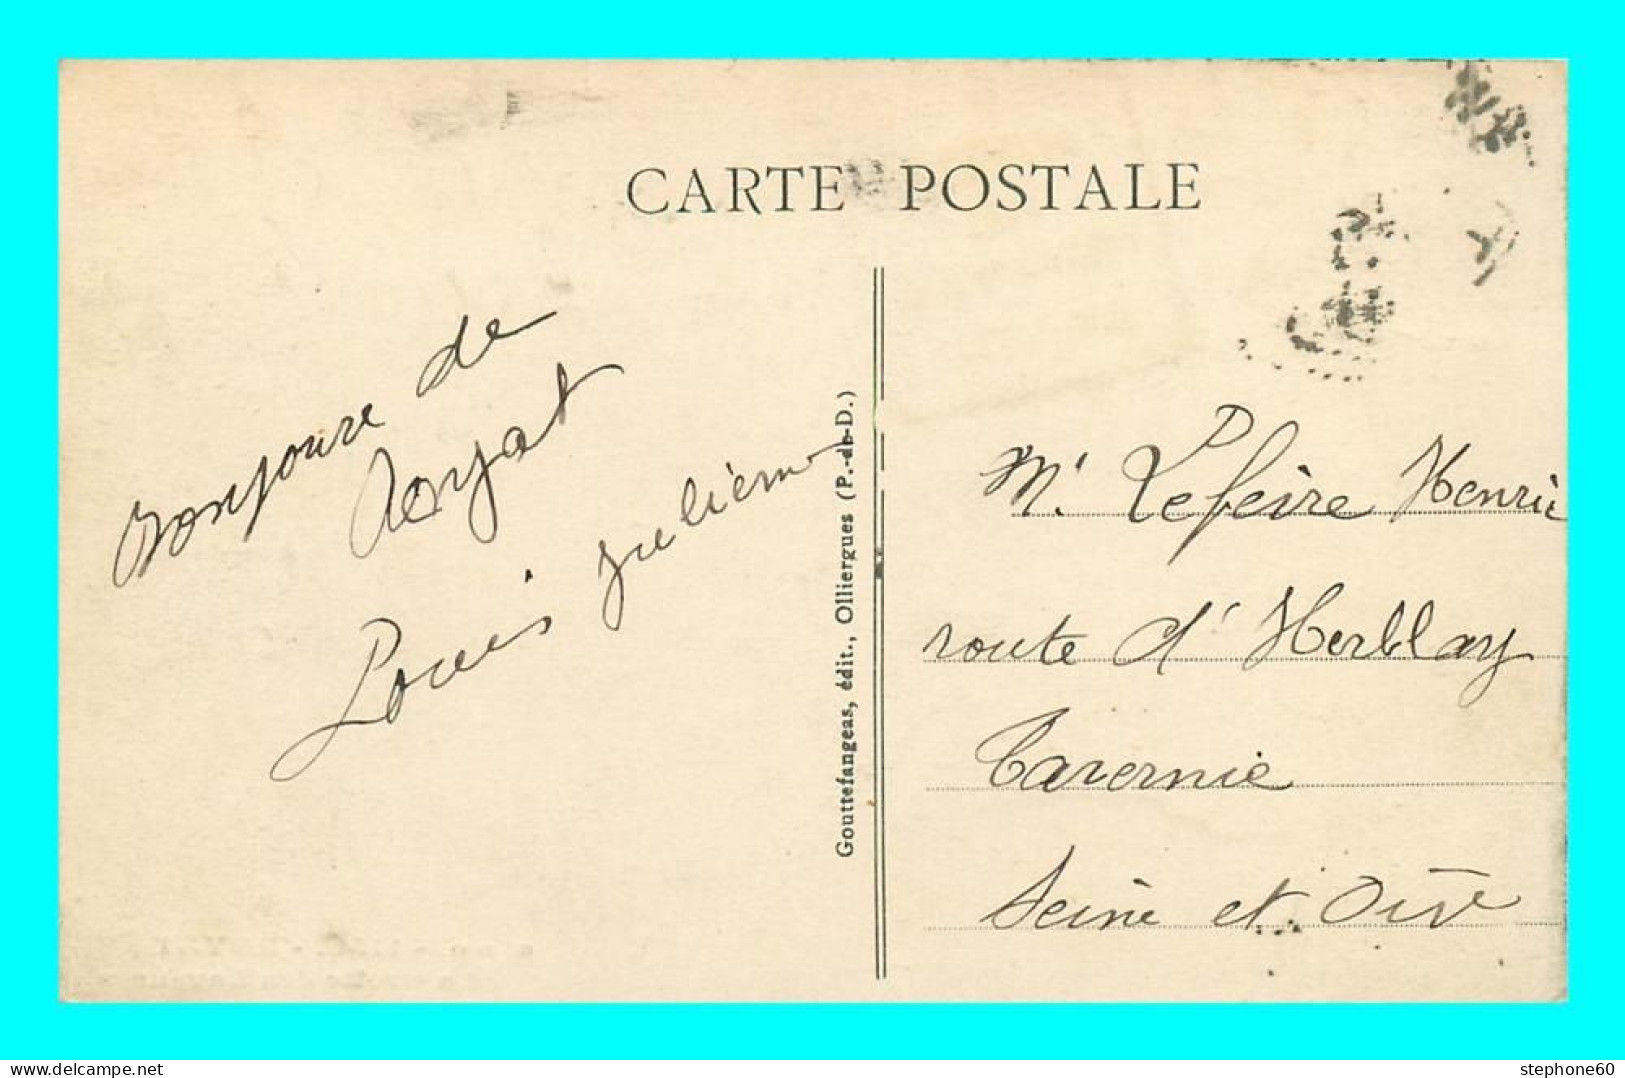 CARTE POSTALE
Bonjoure de
Royat
Louis julienne
Gouttefangeas, édit., Olliergues (P.-de-D.)
Mr Lefeivre Henrie
route d'Herblay
Tavernie
Seine et Oise
delcampe.net
stephone60